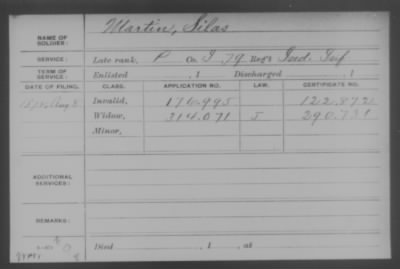 NAME OF SOLDIER: Martin, Silas
SERVICE: Late rank, P Co. I 79 Reg't Ind. Inf
TERM OF SERVICE: Enlisted , 1 Discharged , 1
DATE OF FILING. CLASS. APPLICATION NO. LAW. CERTIFICATE NO.
Invalid, 176.995 122.872
Widow, 314.071 J 290.731
Minor,
ADDITIONAL SERVICES:
REMARKS:
Died , 1 , at